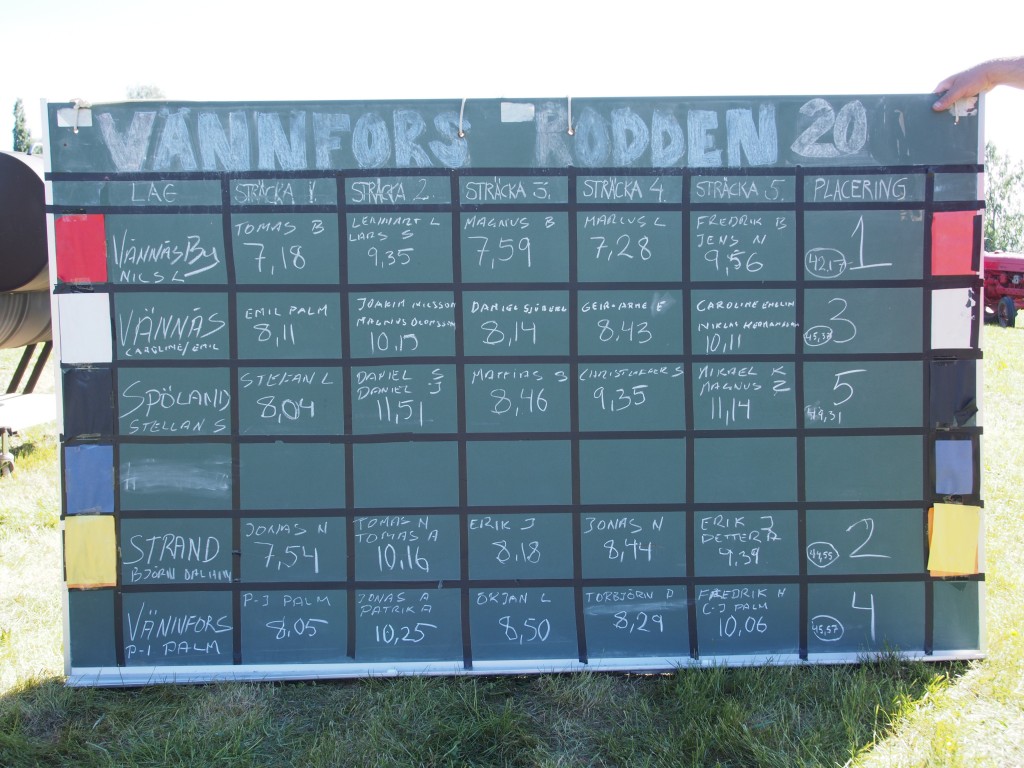 VÄNNFORS RODDEN 20
LAG STRÄCKA 1. STRÄCKA 2. STRÄCKA 3. STRÄCKA 4. STRÄCKA 5. PLACERING
VÄNNÄSBY
NICS L
TOMAS B
7,18
LENNHART L
LARS S
9,35
MAGNUS B
7,59
MARCUS L
7,28
FREDRIK B
JENS N
9,56
42,17
1
VÄNNÄS
CAROLINE/EMIL
EMIL PALM
8,11
JOAKIM NILSSON
MAGNUS OLOFSSON
10,15
DANIEL SJÖBERG
8,14
GEIR-ARNE E
8,43
CAROLINE
NIKLAS
10,11
3
SPÖLAND
STELLAN S
STEFAN L
8,04
DANIEL S
DANIEL J
11,51
MATTIAS S
8,46
CHRISTOFFER S
9,35
MIKAEL K
MAGNUS Z
11,14
5
49,31
STRAND
BJÖRN
JONAS N
7,54
TOMAS N
TOMAS A
10,16
EIRIK J
8,18
JONAS N
8,44
ERIK J
PETTER
9,39
2
VÄNNFORS
P-I PALM
P-I PALM
8,05
JONAS A
PATRIK A
10,25
ÖRJAN L
8,50
TORBJÖRN D
8,29
FREDRIK H
C-J PALM
10,06
45,57
4